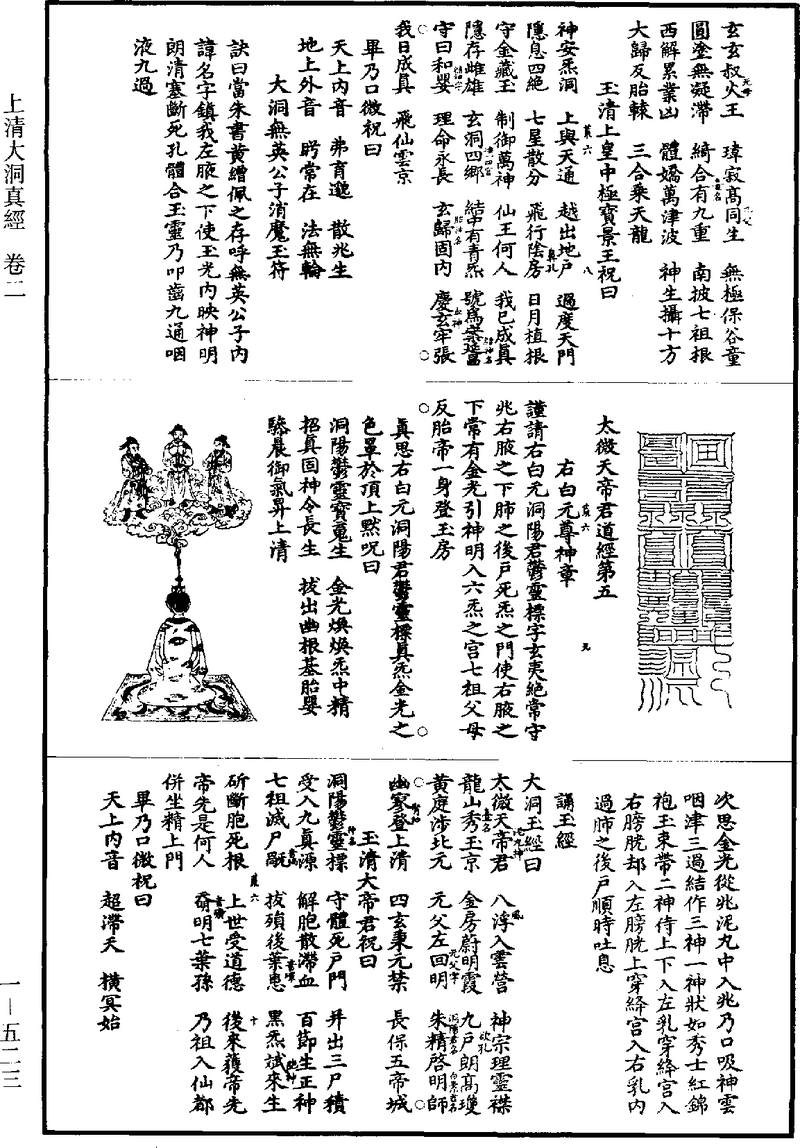 玄玄叔火王　瑋寂高同生　無極保谷童
圓塗無凝滯　綺合有九重　南披七祖根
西解累業凶　體嬌萬津波　神生攝十方
大歸反胎轅　三合乘天龍
玉清上皇中極寶景王祝曰
神安炁洞　上與天通　越出地戶　過度天門
隱息四絶　七星散分　飛行陰房　日月植根
守金藏玉　制御萬神　仙王何人　我已成真
隱存雌雄　玄洞四鄉　結中有青炁　號爲
守曰和嬰　理命永長　玄歸固內　慶玄牢張
我日成真　飛仙雲京
畢乃口微祝曰
天上內音　弗育邈　散兆生
地上外音　眄常在　法無輪
大洞無英公子消魔玉符
訣曰當朱書黃繒佩之存呼無英公子內
諱名字鎮我左腋之下使玉光內映神明
朗清塞斷死孔體合玉靈乃叩齒九通咽
液九過
太微天帝君道經第五
右白元尊神章
謹請右白元洞陽君鬱靈標字玄夷絶常守
兆右腋之下肺之後戶死炁之門使右腋之
下常有金光引神明入六炁之宮七祖父母
反胎帝一身登玉房
真思右白元洞陽君鬱靈標真炁金光之
色罩於頂上默呪曰
洞陽鬱靈寶蒐生　金光煥煥炁中精
招真固神令長生　拔出幽根基胎嬰
驂晨御氣昇上清
次思金光從兆泥丸中入兆乃口吸神雲
咽津三過結作三神一神狀如秀士紅錦
袍玉束帶二神侍上下入左乳穿絳宮入
右膀胱却入左膀胱上穿絳宮入右乳內
過肺之後戶順時吐息
誦玉經
大洞玉經曰
太微天帝君　八浮入雲營　神宗理靈襟
龍山秀玉京　金房蔚明霞　九戶朗高瓊
黃庭涉北元　元父左回明　朱精啓明師
幽寥登上清　四玄秉元禁　長保五帝城
玉清大帝君祝曰
洞陽鬱靈標　守體死戶門　并出三尸積
受入九真源　解胞散滯血　百節生正神
七祖滅尸　拔殞後葉患　黑炁斌來生
斫斷胞死根　上世受道德　後來獲帝先
帝先是何人　奇明七葉孫　乃祖入仙都
併坐精上門
畢乃口微祝曰
天上內音　超滯天　橫冥始
上清大洞真經　卷二
一—五二三